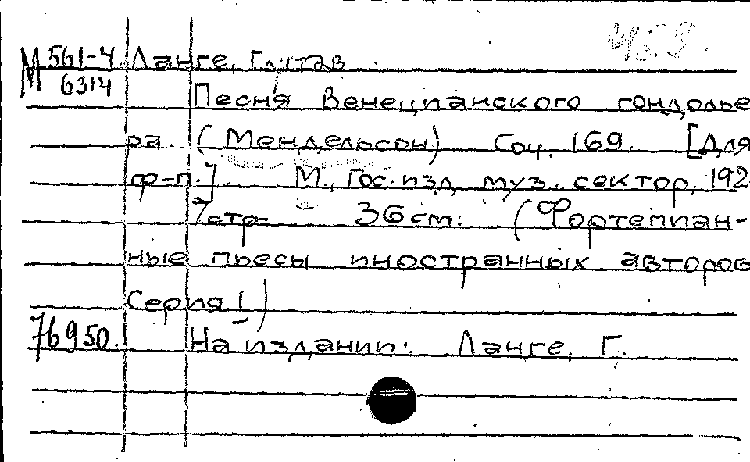 М 561-4 Ланге, Густав
6314
Песня Венецианского гондолье
ра. (Мендельсон) Соч. 169. [Для
ф-п.] М., Гос. изд. муз. сектор, 192
7 стр. 36 см. (Фортепиан-
ные пьесы иностранных авторов
Серия I)
76950. На издании: Ланге, Г.